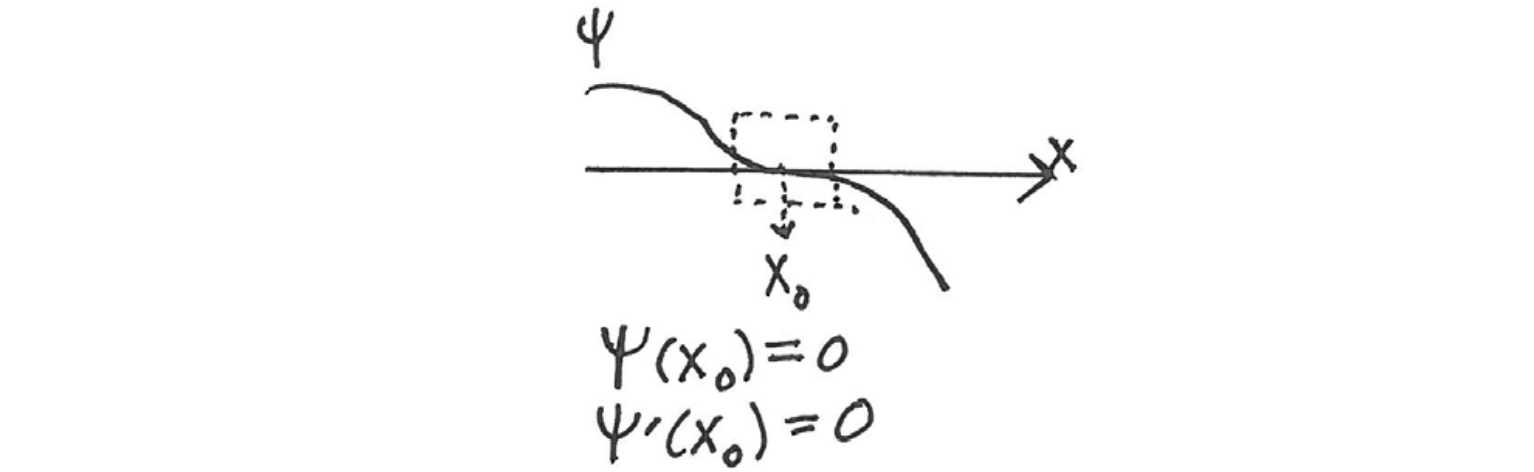 Ψ
X
X₀
Ψ(X₀)=0
Ψ'(X₀)=0